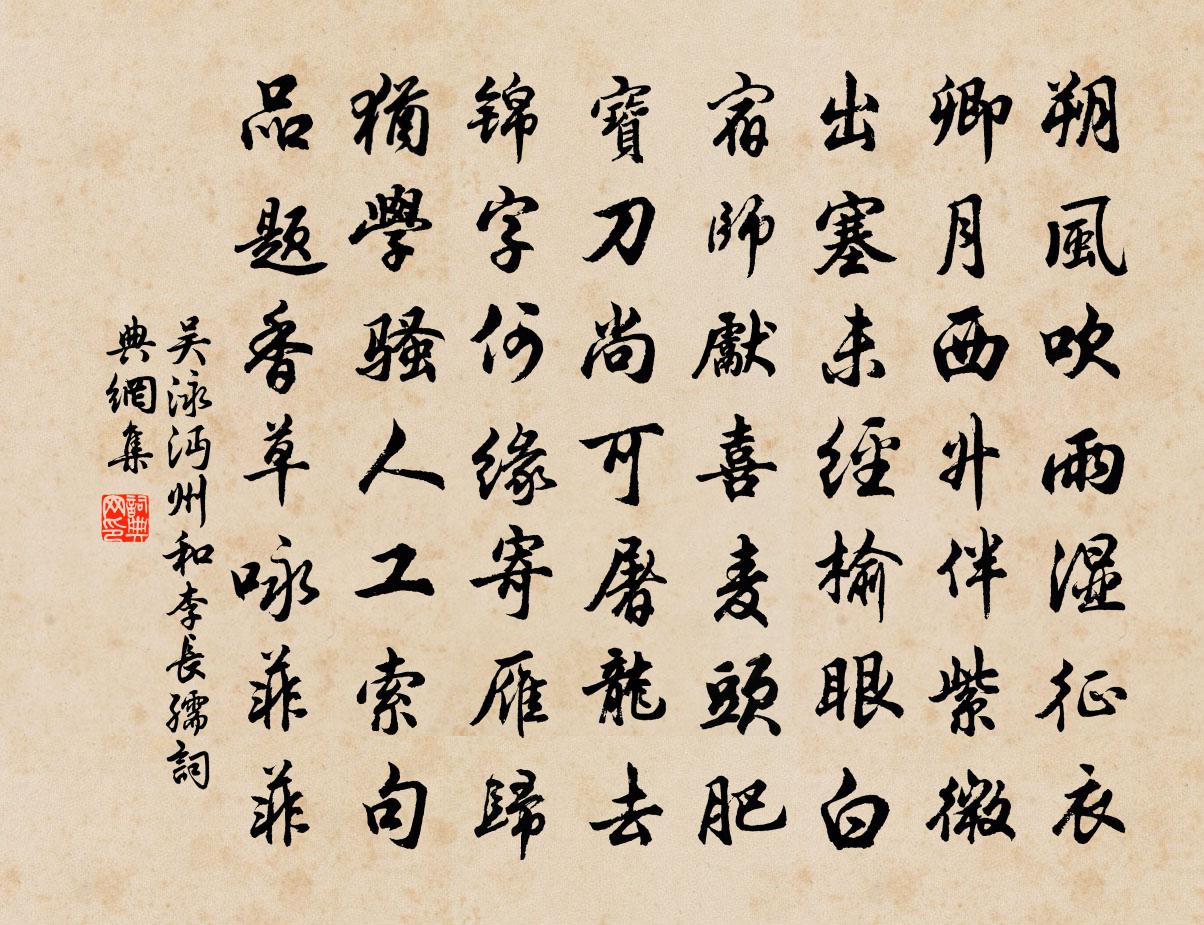 朔風吹雨濕征衣
卿月西升伴紫微
出塞未經榆眼白
宿師獻喜麦頭肥
寶刀尚可屠龍去
锦字何緣寄雁歸
猶學騷人工索句
品題香草咏菲菲
吴泳沔州和李長孺詞
典網集
詞典网印